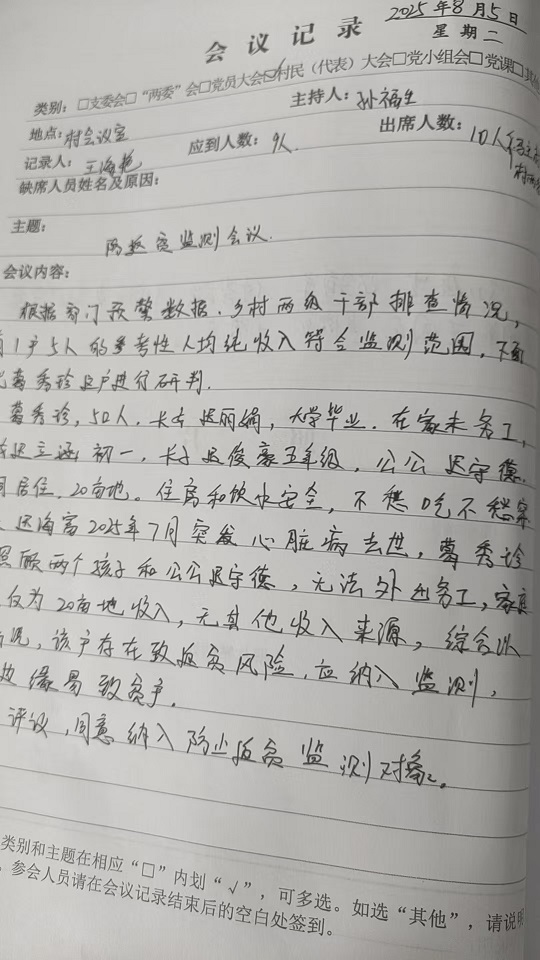 2025年8月5日
会议记录
星期二
类别：□支委会□“两委”会□党员大会☑村民（代表）大会□党小组会□党课□其
地点：村会议室
主持人：孙福生
记录人：王海艳
应到人数：9人
出席人数：10人
缺席人员姓名及原因：
主题：
防返贫监测会议.
会议内容：
根据部门预警数据.乡村两级干部排查情况，
1户5人的参考性人均纯收入符合监测范围，下面
葛秀珍进行研判.
葛秀珍，50人.长女迟丽娟，大学毕业.在家未务工，
初一，长子迟俊豪五年级，公公迟守德.
同居住，20亩地。住房和饮水安全，不愁吃不愁穿
迟海富2025年7月突发心脏病去世，葛秀珍
照顾两个孩子和公公迟守德，无法外出务工，家庭
仅为20亩地收入，无其他收入来源，综合以
况，该户存在致返贫风险.应纳入监测，
边缘易致贫户.
评议，同意纳入防止返贫监测对象。
类别和主题在相应“□”内划“√”，可多选。如选“其他”，请说明
参会人员请在会议记录结束后的空白处签到。